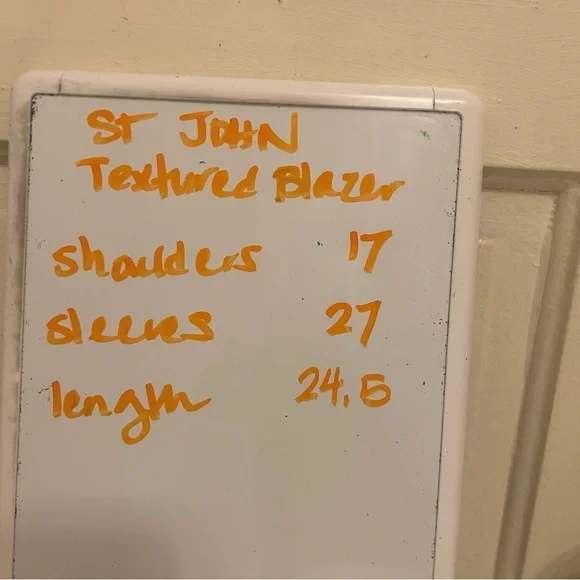 ST JOHN
Textured Blazer
shoulders 17
sleeves 27
length 24.5